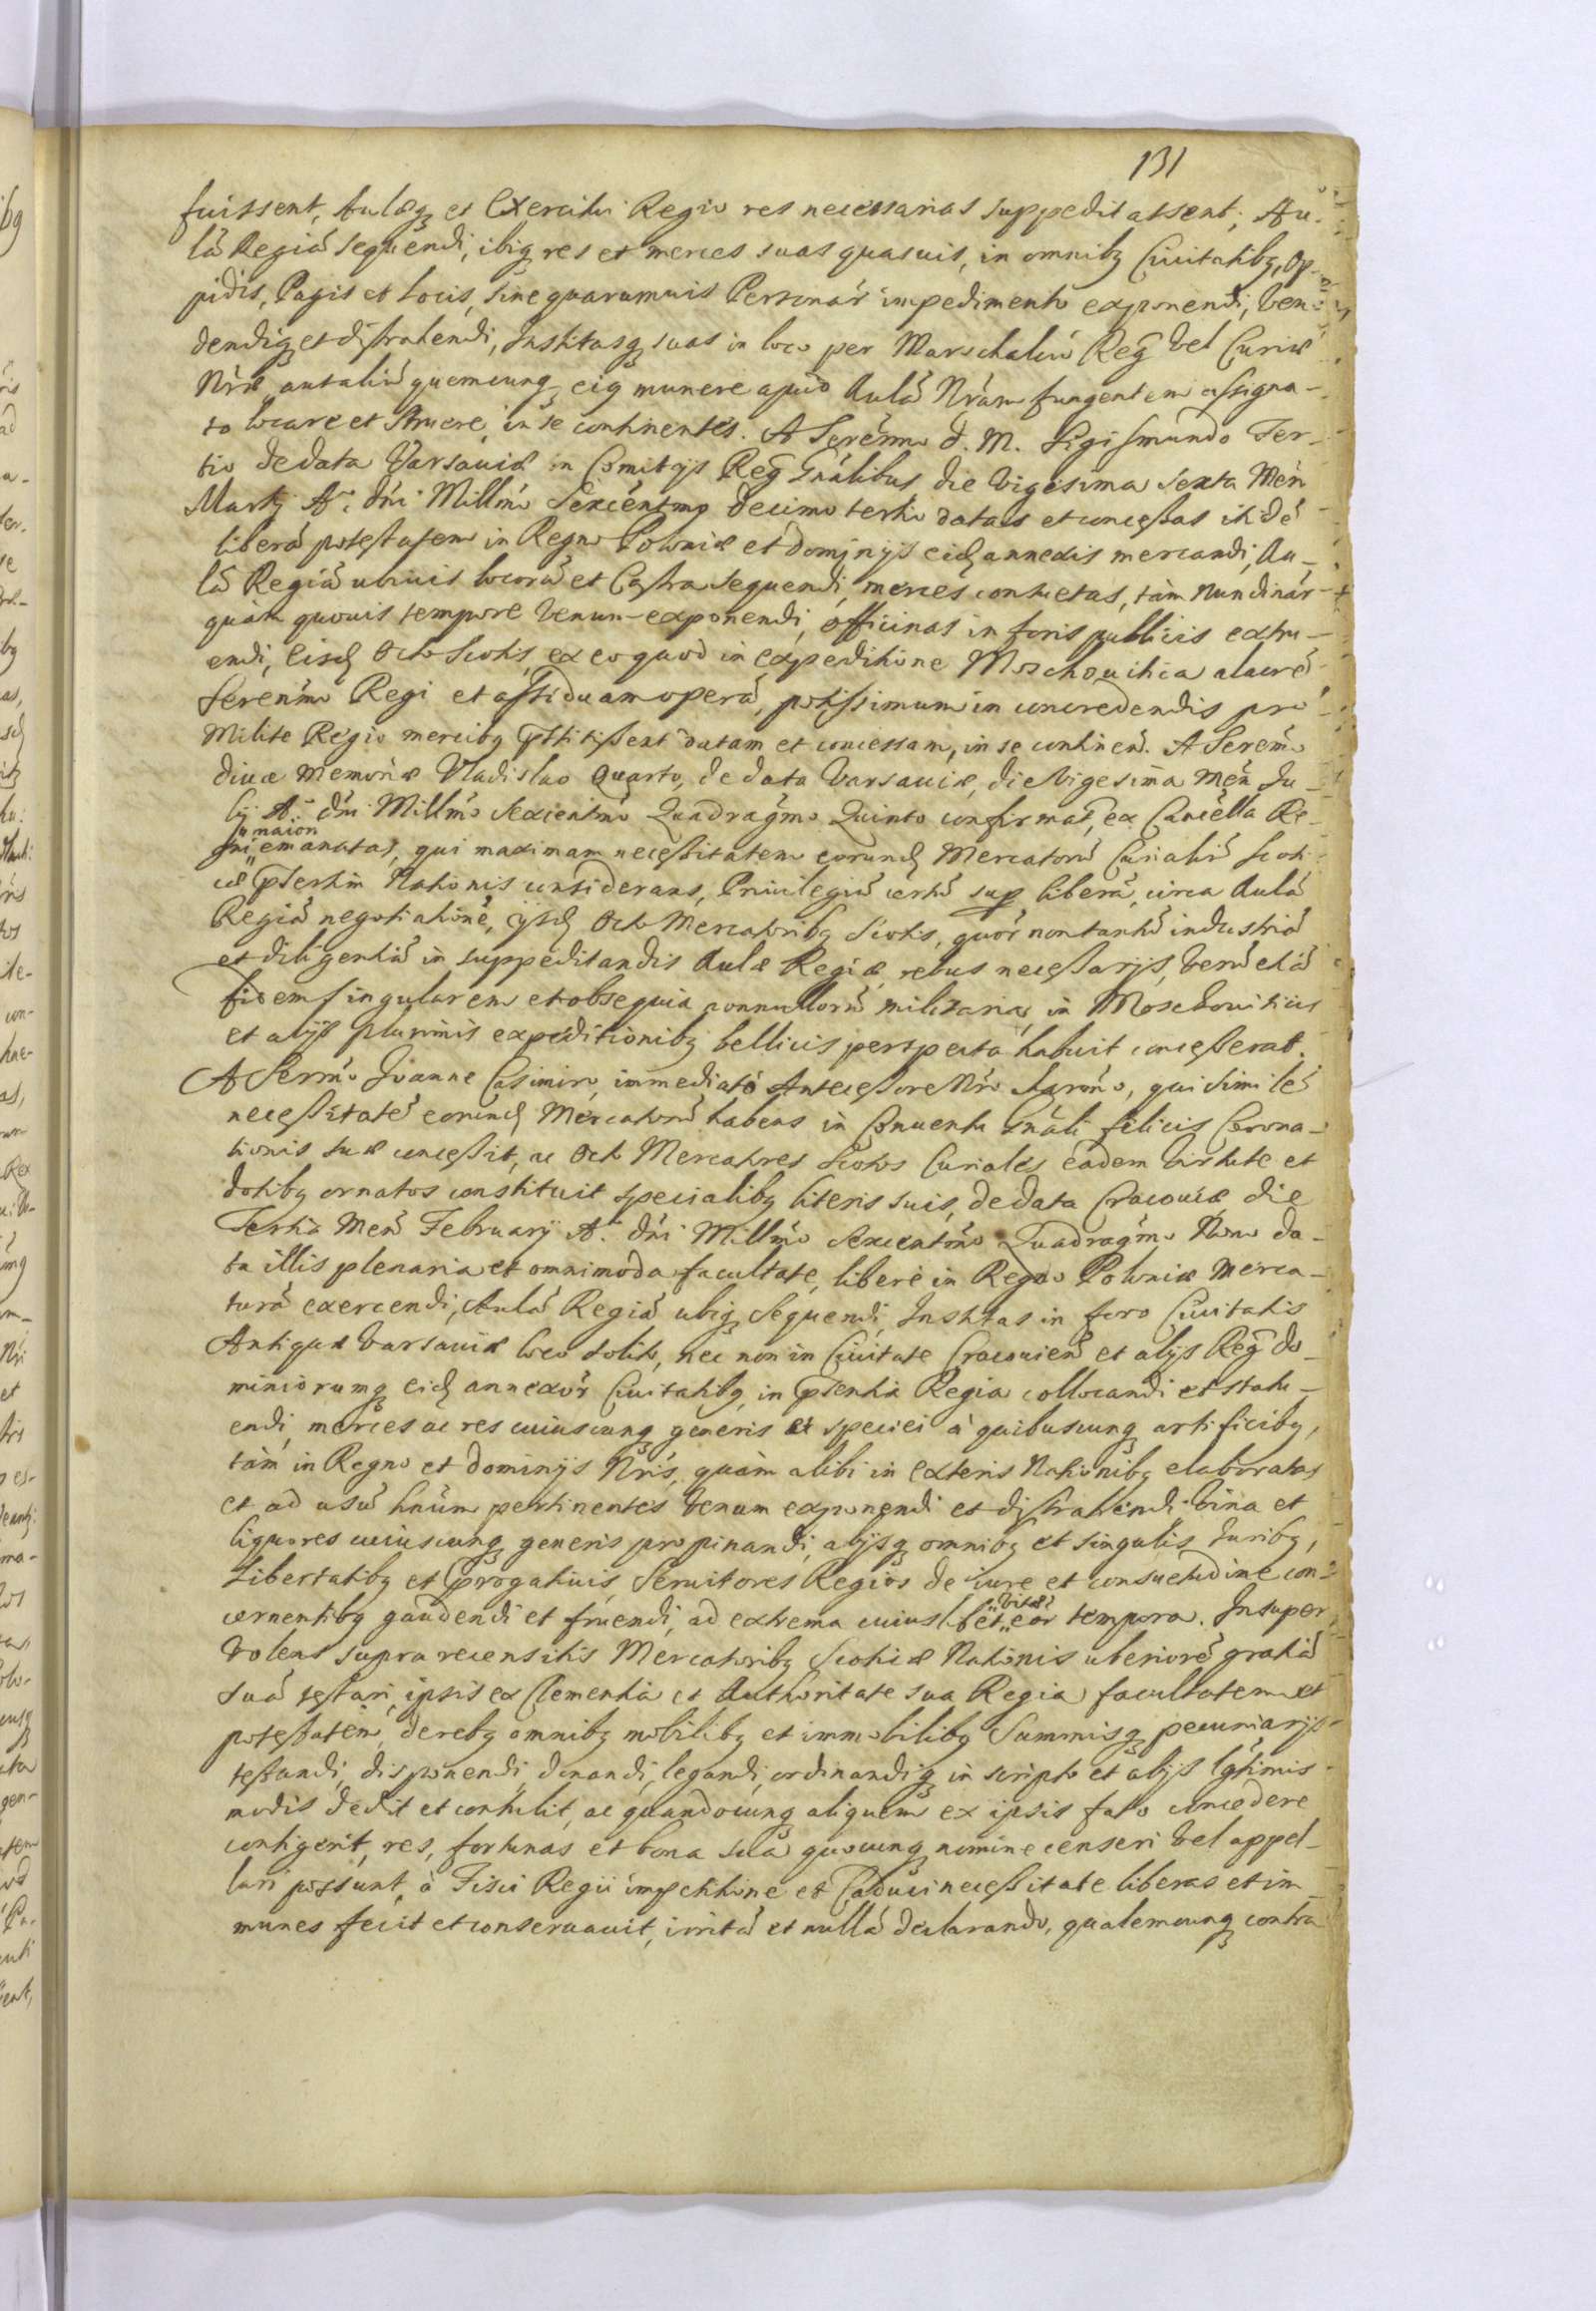 131
fuissent, Aulæq₃ et Exercitui Regio res necessarias suppeditassent; Au-
lã Regiã sequendi, ibiq₃ res et merces suas quasuis, in omnib₃ Ciuitatib₃, Op-
pidis, Pagis et Locis, sine quarumuis Personar̃ impedimento exponendi, Ven-
dendiq₃ et distrahendi, Institasq₃ suas in loco per Marschalcũ Reg̃ vel Curiæ
Nr̃æ aut aliũ quemcunq₃ eiq₃ munere apud Aulã Nr̃am fungentem assigna-
to locare et struere, in se continentes. A Serenmo d. M. Sigismundo Ter-
tio de data Varsauiæ in Comitijs Reg̃ Gñalibus die Vigesima sexta Meñ
Martij Aº dñi Millmo Sexcentmo decimo tertio datas et concessas itidẽ
liberã potestatem in Regno Poloniæ et dominijs eid annexis mercandi, Au-
lã Regiã ubiuis locorũ et Castra sequendi, merces consuetas, tàm Nundinar̃
quàm quouis tempore Venum exponendi, officinas in foris publicis extru-
endi, eisd Octo Scotis, ex eo quod in expeditione Moschouitica alacrẽ
Serenmo Regi et assiduam operã, potissimum in concredendis pro
Milite Regio mercib₃ p̃stitissent datam et concessam, in se contineñ. A Serenmo
diuæ Memoriæ Vladislao Quarto, de data Varsauiæ, die Vigesima Meñ Ju-
lij Aº dñi Millmo Sexcentmo Quadragmo Quinto confirmat, ex Cancella Re-
gni maiori emanatas, qui maximam necessitatem eorund Mercatorũ Curialiũ Scoti-
cæ p̃sertim Nationis considerans, Priuilegiũ certũ sup liberã, circa Aulã
Regiã negotiationẽ, ijsd Octo Mercatorib₃ Scotis, quor̃ non tantũ industriã
et diligentiã in suppeditandis Aulæ Regiæ rebus necessarijs, Verũ etiã
fidem singularem et obsequia nonnullorũ militaria, in Moschouiticis
et alijs plurimis expeditionib₃ bellicis perspecta habuit concesserat.
A Sermo Joanne Casimiro, immediato Antecessore Nr̃o Charmo, qui similẽ
necessitatẽ eorund Mercatorũ habens in Conuentu Gñali felicis Corona-
tionis suæ concessit, ac Octo Mercatores Scotos Curiales eadem Virtute et
dotib₃ ornatos constituit specialib₃ literis suis, de data Cracouiæ die
Tertia Meñ February Aº dñi Millmo Sexcentmo Quadragmo Nono da-
ta illis plenaria et omnimoda facultate, liberè in Regno Poloniæ Merca-
turã exercendi, Aulã Regiã ubiq₃ Sequendi, Institas in foro Ciuitatis
Antiquæ Varsauiæ loco solito, nec non in Ciuitate Cracouieñ et alijs Reg̃ do-
miniorumq₃ eid annexor̃ Ciuitatib₃, in p̃sentia Regia collocandi et statu-
endi, merces ac res cuiuscunq₃ generis et speciei à quibuscunq₃ artificib₃,
tàm in Regno et dominijs Nr̃is, quàm alibi in exteris Nationib₃ elaboratas
et ad usũ hñum pertinentes Venum exponendi et distrahendi, Vina et
liquores cuiuscunq₃ generis propinandi, alijsq₃ omnib₃ et singulis Jurib₃,
Libertatib₃ et p̃rogatiuis Seruitores Regios de iure et consuetudine con-
cernentib₃ gaudendi et fruendi, ad extrema cuiuslibet vitæ eor̃ tempora. Insuper
Volens supra recensitis Mercatorib₃ Scoticæ Nationis uberiorẽ gratiã
suã testari, ipsis ex Clementia et Authoritate sua Regia facultatem et
potestatem, de reb₃ omnib₃ mobilib₃ et immobilib₃ Summisq₃ pecuniarijs
testandi, disponendi, donandi, legandi, ordinandiq₃ in scripto et alijs lg̃timis
modis dedit et contulit, ac quandocunq₃ aliquem ex ipsis fato concedere
contigerit, res, fortunas et bona sua quocunq₃ nomine censeri Vel appel-
lari possunt, à Fisci Regii impetitione et Caduci necessitate liberas et im-
munes fecit et conseruauit, irritã et nullã declarando, qualemcunq₃ contra